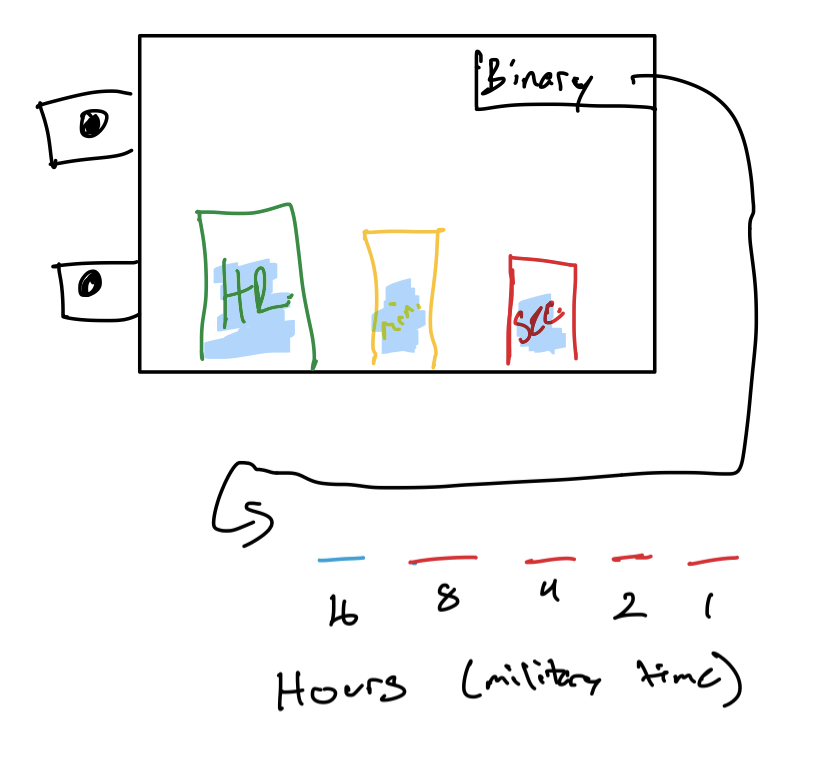 Binary
HR. min. SEC.
16 8 4 2 1
Hours (military time)